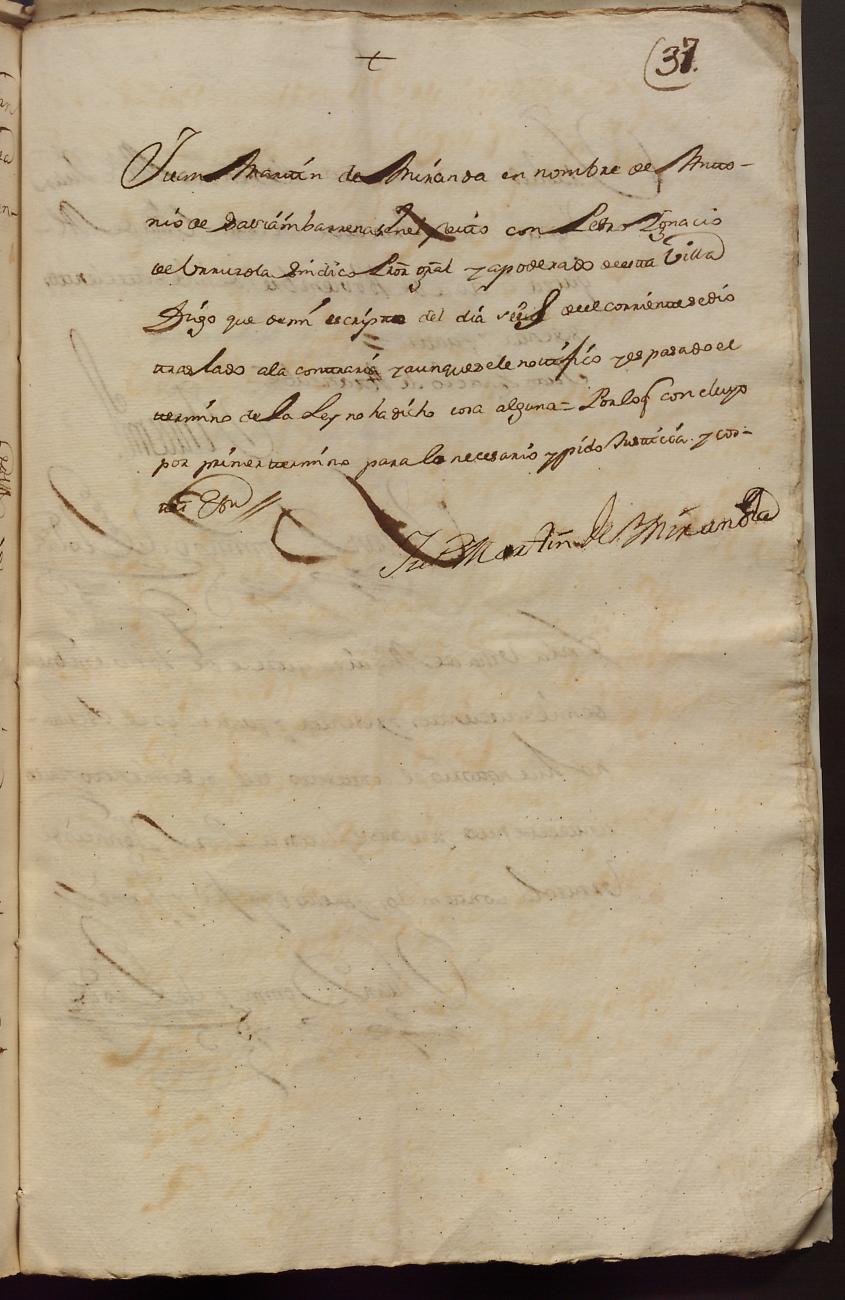 +
37.
Juan Martin de Miranda en nombre de Anto-
nio de en el pleito con Pedro Ygnacio
de Urruzola Sindico Pror gral y apoderado de esta Villa
Digo que de mi escripto del dia seis de el corriente se dio
traslado a la contraria y aunque se le notifico y es pasado el
termino de la Ley no ha dicho cosa alguna = Por lo q concluyo
por primer termino para lo necesario y pido Justicia y cos-
tas Etta
Jun Martin de Miranda